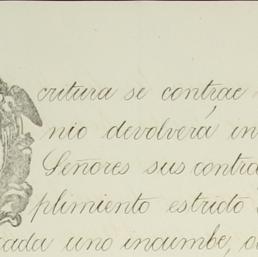 critura se contrae
nio devolverá in
Señores sus contra
plimiento estricto
cada uno incumbe, o